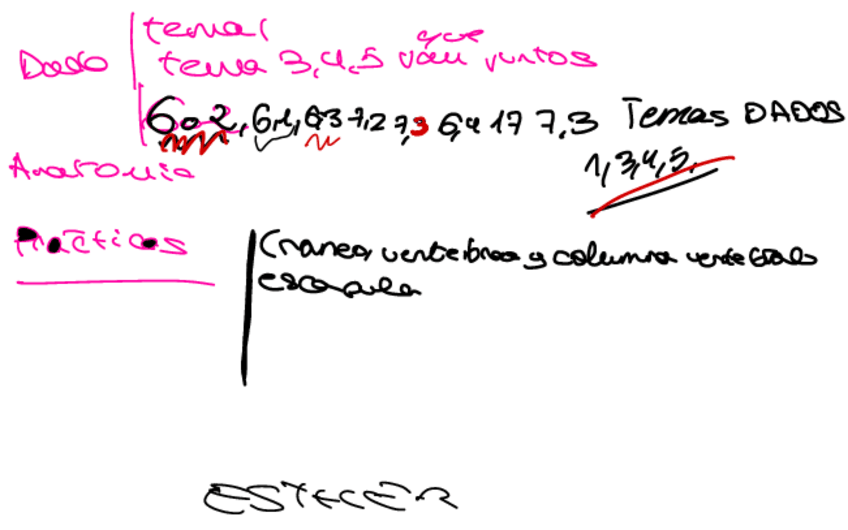 tema 1
que
Dado tema 3,4,5 van juntos
6.2, 6,1, 6,3 7,2 7,3 6,4 17 7,3 Temas DADOS
1,3,4,5.
Anatomia
Prácticas
Craneo, vertebras y columna vertebral
escapula